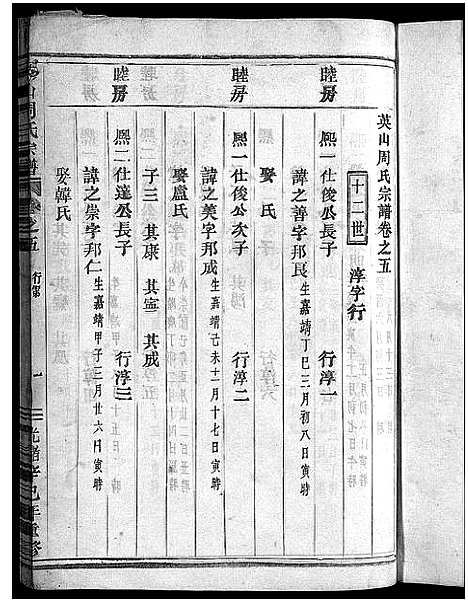 英山周氏宗譜卷之五
十二世 淳字行
睦房 熙一仕俊公長子 行淳一
諱之善字邦良 生嘉靖丁巳三月初八日寅時
娶 氏
睦房 熙一仕俊公次子 行淳二
諱之美字邦成 生嘉靖己未十一月十七日寅時
娶盧氏
子三 其康 其寧 其成
睦房 熙二仕達公長子 行淳三
諱之崇字邦仁 生嘉靖甲子三月廿六日寅時
娶韓氏
山周氏宗譜 之五 行第 一 光緒辛巳年重修